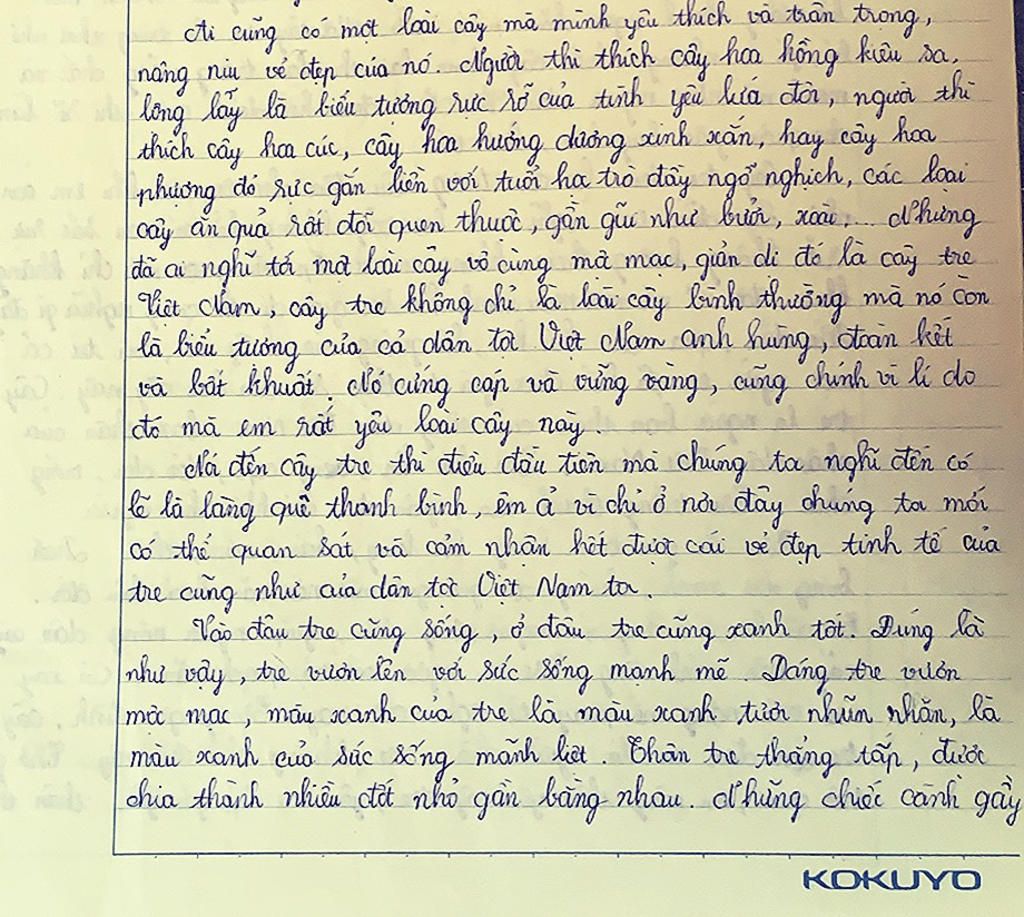 Ai cũng có một loài cây mà mình yêu thích và trân trọng,
nâng niu vẻ đẹp của nó. Người thì thích cây hoa hồng kiêu sa,
lộng lẫy là biểu tượng rực rỡ của tình yêu lứa đôi, người thì
thích cây hoa cúc, cây hoa hướng dương xinh xắn, hay cây hoa
phượng đỏ rực gắn liền với tuổi học trò đầy ngỗ nghịch, các loại
cây ăn quả rất đỗi quen thuộc, gần gũi như bưởi, xoài,... Nhưng
đã ai nghĩ tới một loài cây vô cùng mộc mạc, giản dị đó là cây tre
Việt Nam, cây tre không chỉ là loài cây bình thường mà nó còn
là biểu tượng của cả dân tộc Việt Nam anh hùng, đoàn kết
và bất khuất. Nó cứng cáp và vững vàng, cũng chính vì lí do
đó mà em rất yêu loài cây này.
Nói đến cây tre thì điều đầu tiên mà chúng ta nghĩ đến có
lẽ là làng quê thanh bình, êm ả vì chỉ ở nơi đây chúng ta mới
có thể quan sát và cảm nhận hết được cái vẻ đẹp tinh tế của
tre cũng như của dân tộc Việt Nam ta.
Vào đâu tre cũng sống, ở đâu tre cũng xanh tốt. Đúng là
như vậy, tre vươn lên với sức sống mạnh mẽ. Dáng tre vươn
mộc mạc, màu xanh của tre là màu xanh tươi nhũn nhặn, là
màu xanh của sức sống mãnh liệt. Thân tre thẳng tắp, được
chia thành nhiều đốt nhỏ gần bằng nhau. Những chiếc cành gầy
KOKUYO